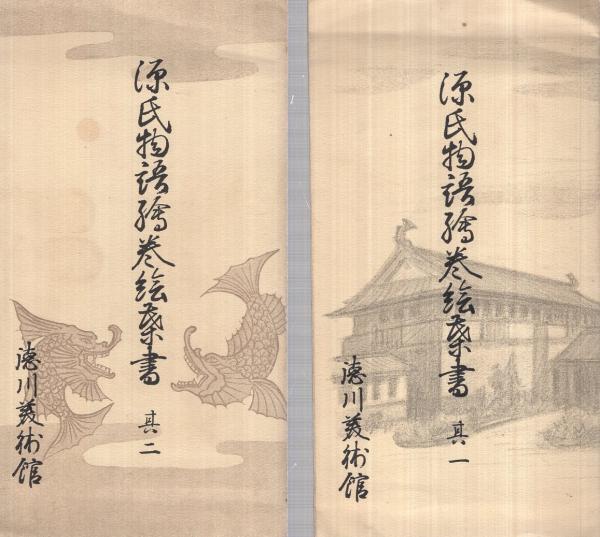 源氏物語繪巻絵葉書
其一
徳川美術館
源氏物語繪巻絵葉書
其二
徳川美術館